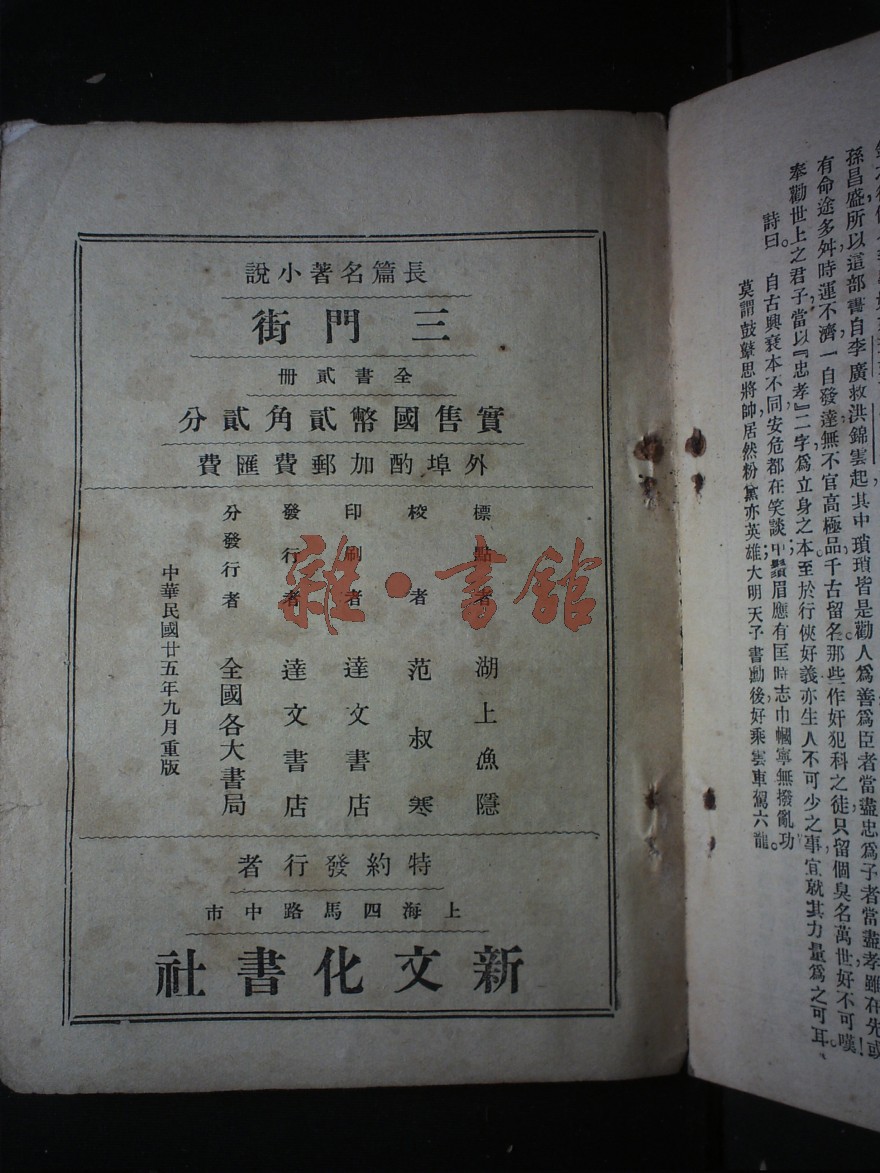 孫昌盛所以這部書自李廣救洪錦雲起其中瑣瑣皆是勸人爲善爲臣者當盡忠爲子者當盡孝雖在先或
有命途多舛時運不濟一自發達無不官高極品千古留名那些作奸犯科之徒只留個臭名萬世好不可嘆！
奉勸世上之君子當以『忠孝』二字爲立身之本至於行俠好義亦生人不可少之事宜就其力量爲之可耳。
詩曰。 自古興衰本不同，安危都在笑談中；鬚眉應有匡時志，巾幗寧無撥亂功。
莫謂鼓鼙思將帥，居然粉黛亦英雄，大明天子書勳後，好乘雲車駕六龍。
長篇名著小說
三門街
全書貳冊
實售國幣貳角貳分
外埠酌加郵費匯費
標點者 湖上漁隱
校者 范叔寒
印刷者 達文書店
發行者 達文書店
分發行者 全國各大書局
中華民國廿五年九月重版
特約發行者
上海四馬路中市
新文化書社
雜·書舘